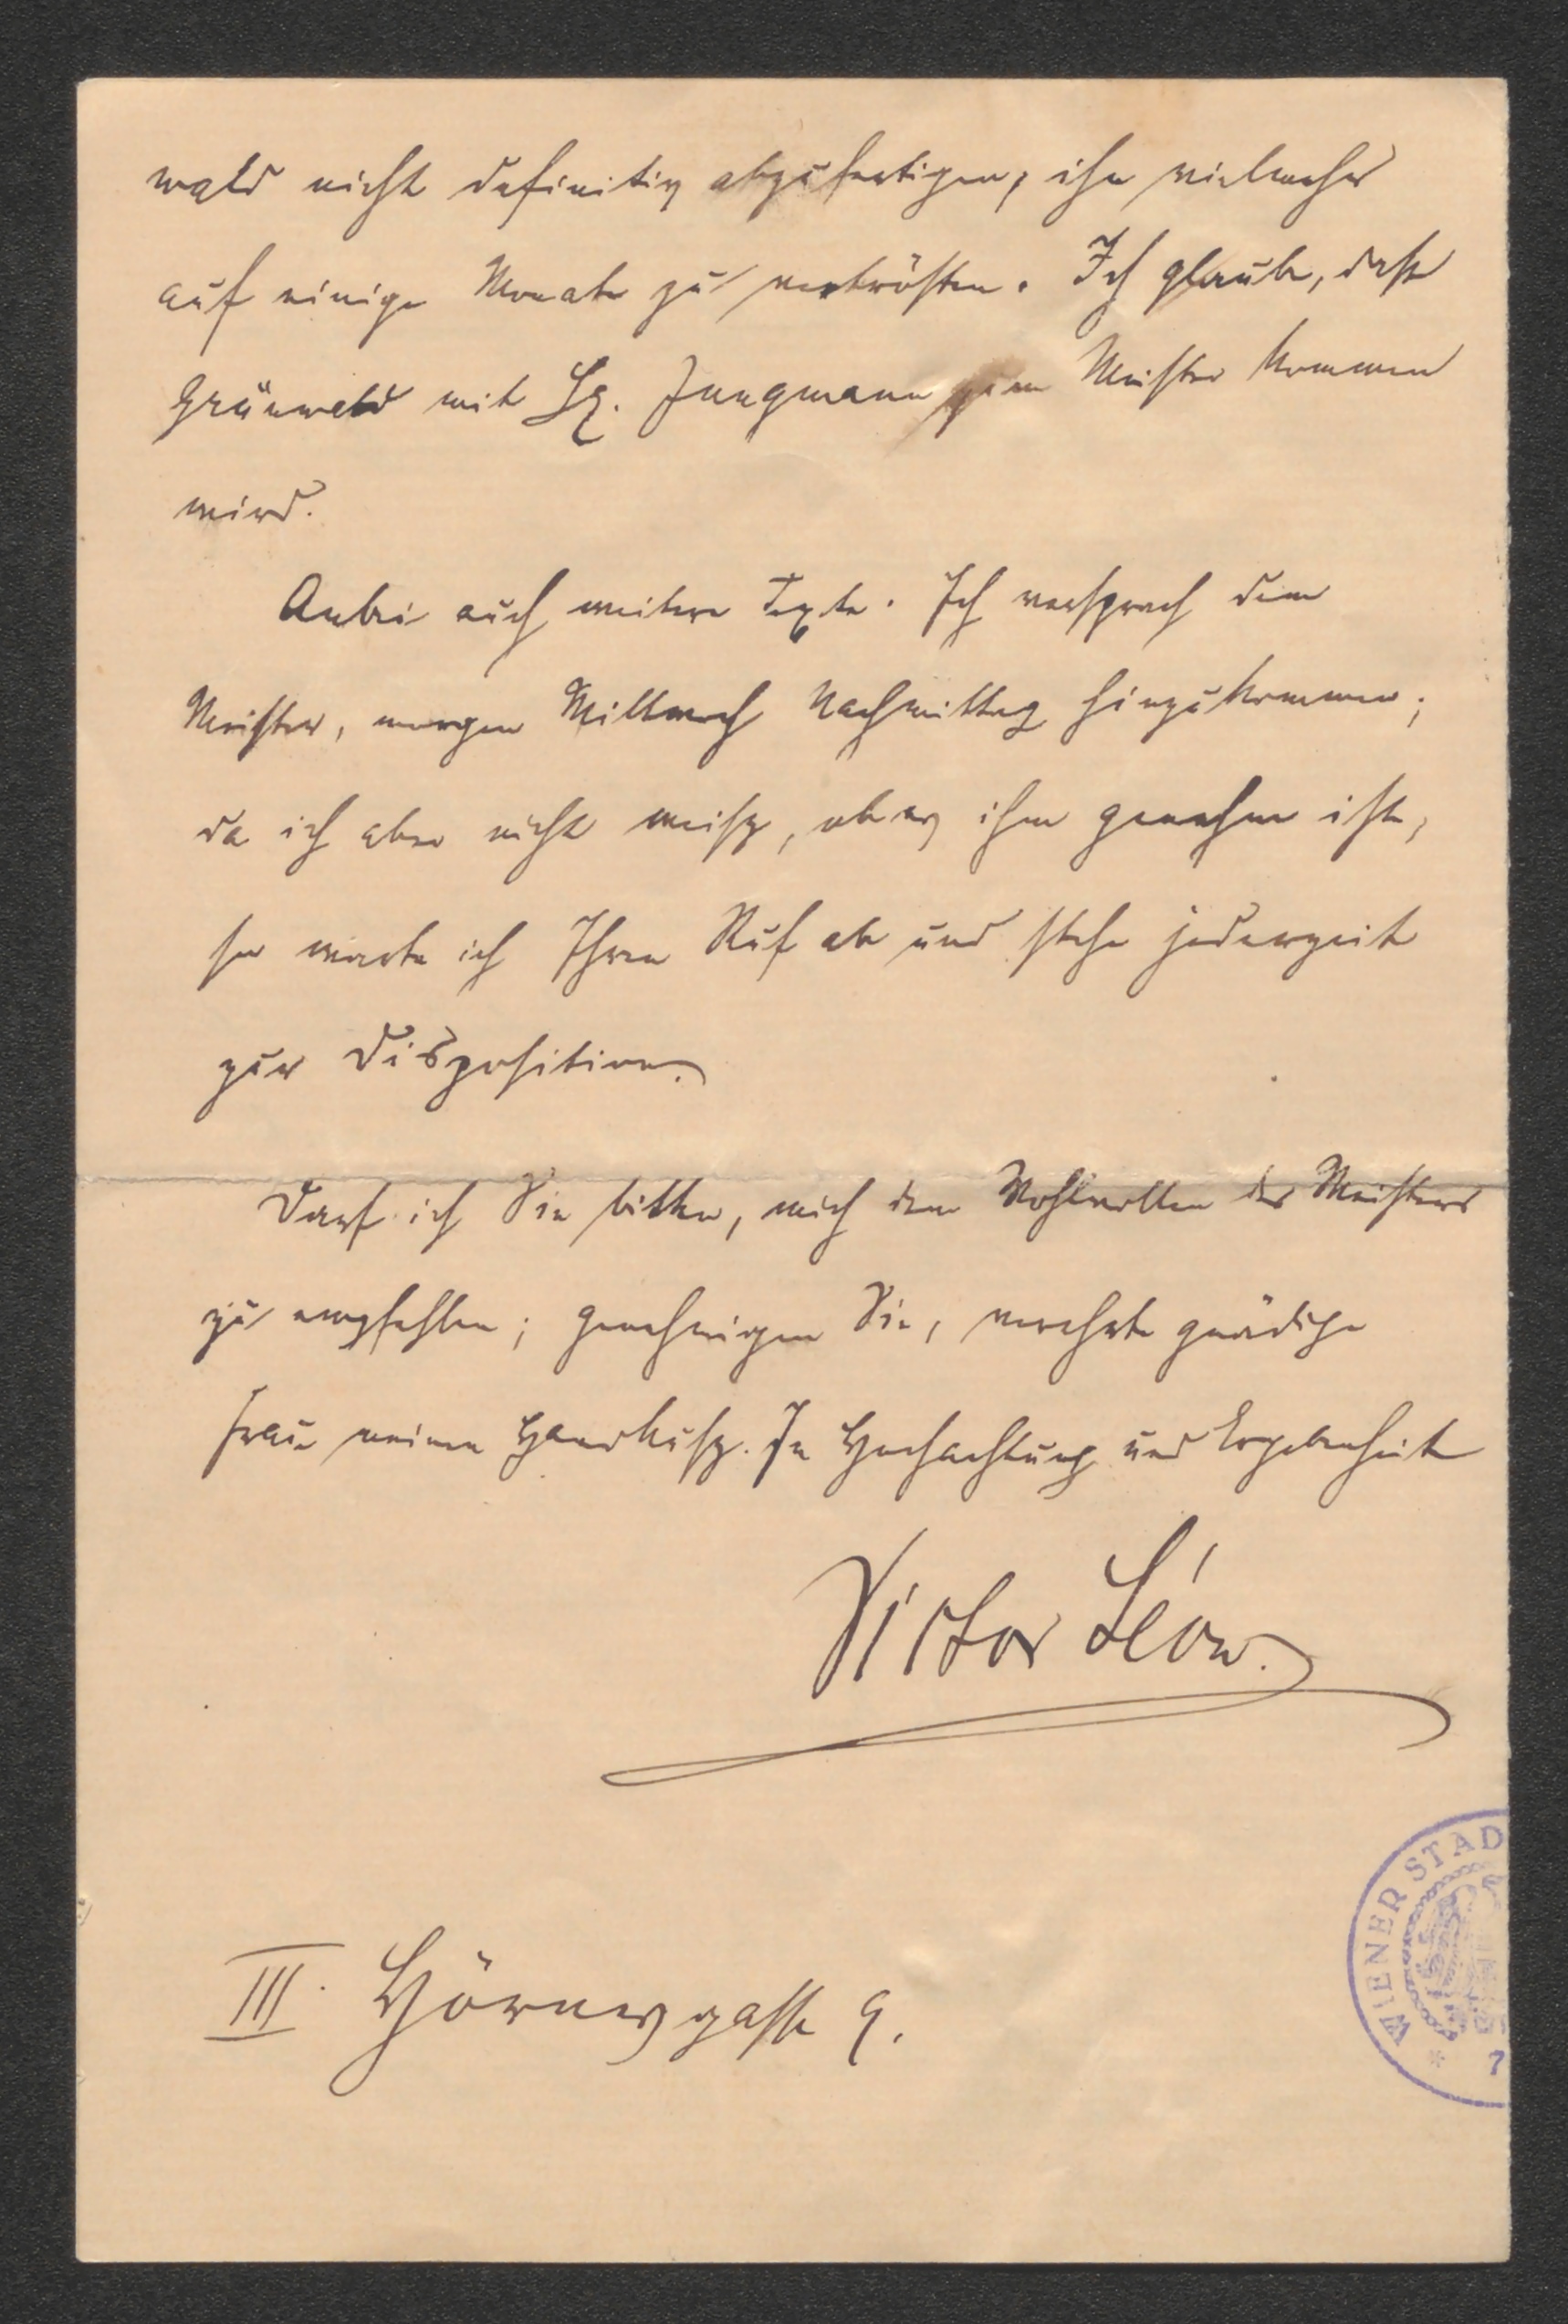 wald nicht definitiv abzufertigen, ihn vielmehr
auf einige Monate zu vertrösten. Ich glaube, daß
Grünwald mit Hr. Jungmann zum Meister kommen
wird.
Anbei auch weitere Texte. Ich versprach dem
Meister, morgen Mittwoch Nachmittag hinzukommen;
da ich aber nicht weiß, ob es ihm genehm ist,
so warte ich Ihren Ruf ab und stehe jederzeit
zur Disposition.
Darf ich Sie bitten, mich dem Wohlwollen des Meisters
zu empfehlen; genehmigen Sie, verehrte gnädige
Frau meinen Handkuß. In Hochachtung und Ergebenheit
Victor Léon.
III. Hörnesgasse 9.
WIENER STAD
* 7